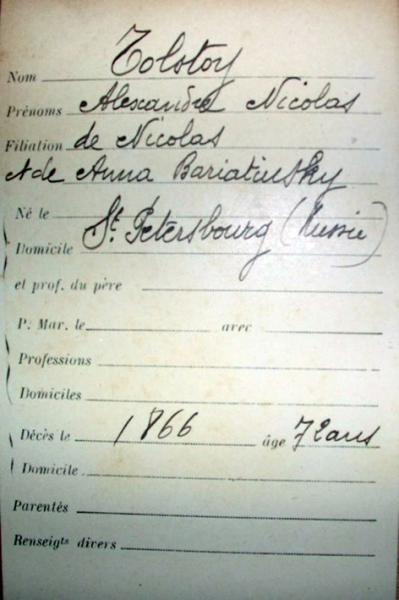 Nom Tolstoy
Prénoms Alexandre Nicolas
Filiation de Nicolas
et de Anna Bariatinsky
Né le
Domicile St. Pétersbourg (Russie)
et prof. du père
P. Mar. le avec
Professions
Domiciles
Décès le 1866 âge 72 ans
Domicile
Parentés
Renseigts divers